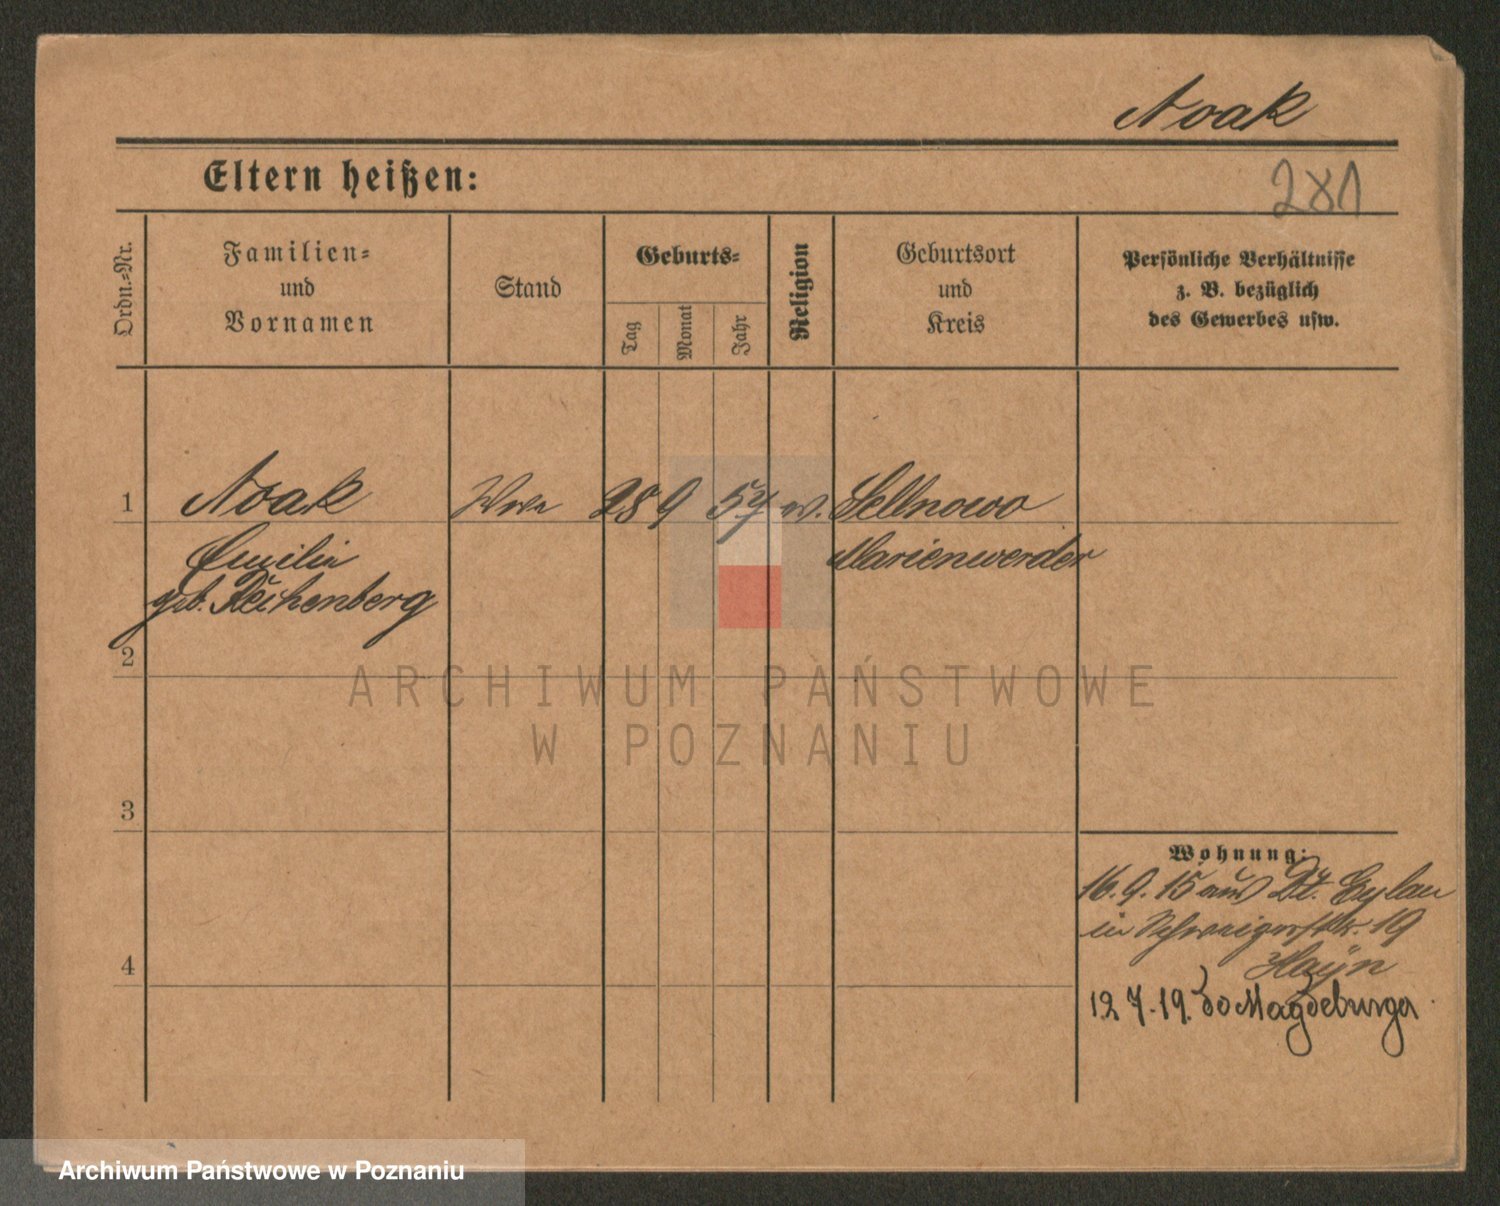 Noak
Eltern heißen:
281
Ordn.-Nr.
Familien-
und
Vornamen
Stand
Geburts-
Tag
Monat
Jahr
Religion
Geburtsort
und
Kreis
Persönliche Verhältnisse
z. B. bezüglich
des Gewerbes usw.
1
Noak
Wwe
28 9 57
Sellnowo
Emilie
Marienwerder
geb. Reichenberg
2
ARCHIWUM PAŃSTWOWE
W POZNANIU
3
Wohnung:
16.9.15 aus Dt. Eylau
in 19
4
12.7.19. do Magdeburga
Archiwum Państwowe w Poznaniu